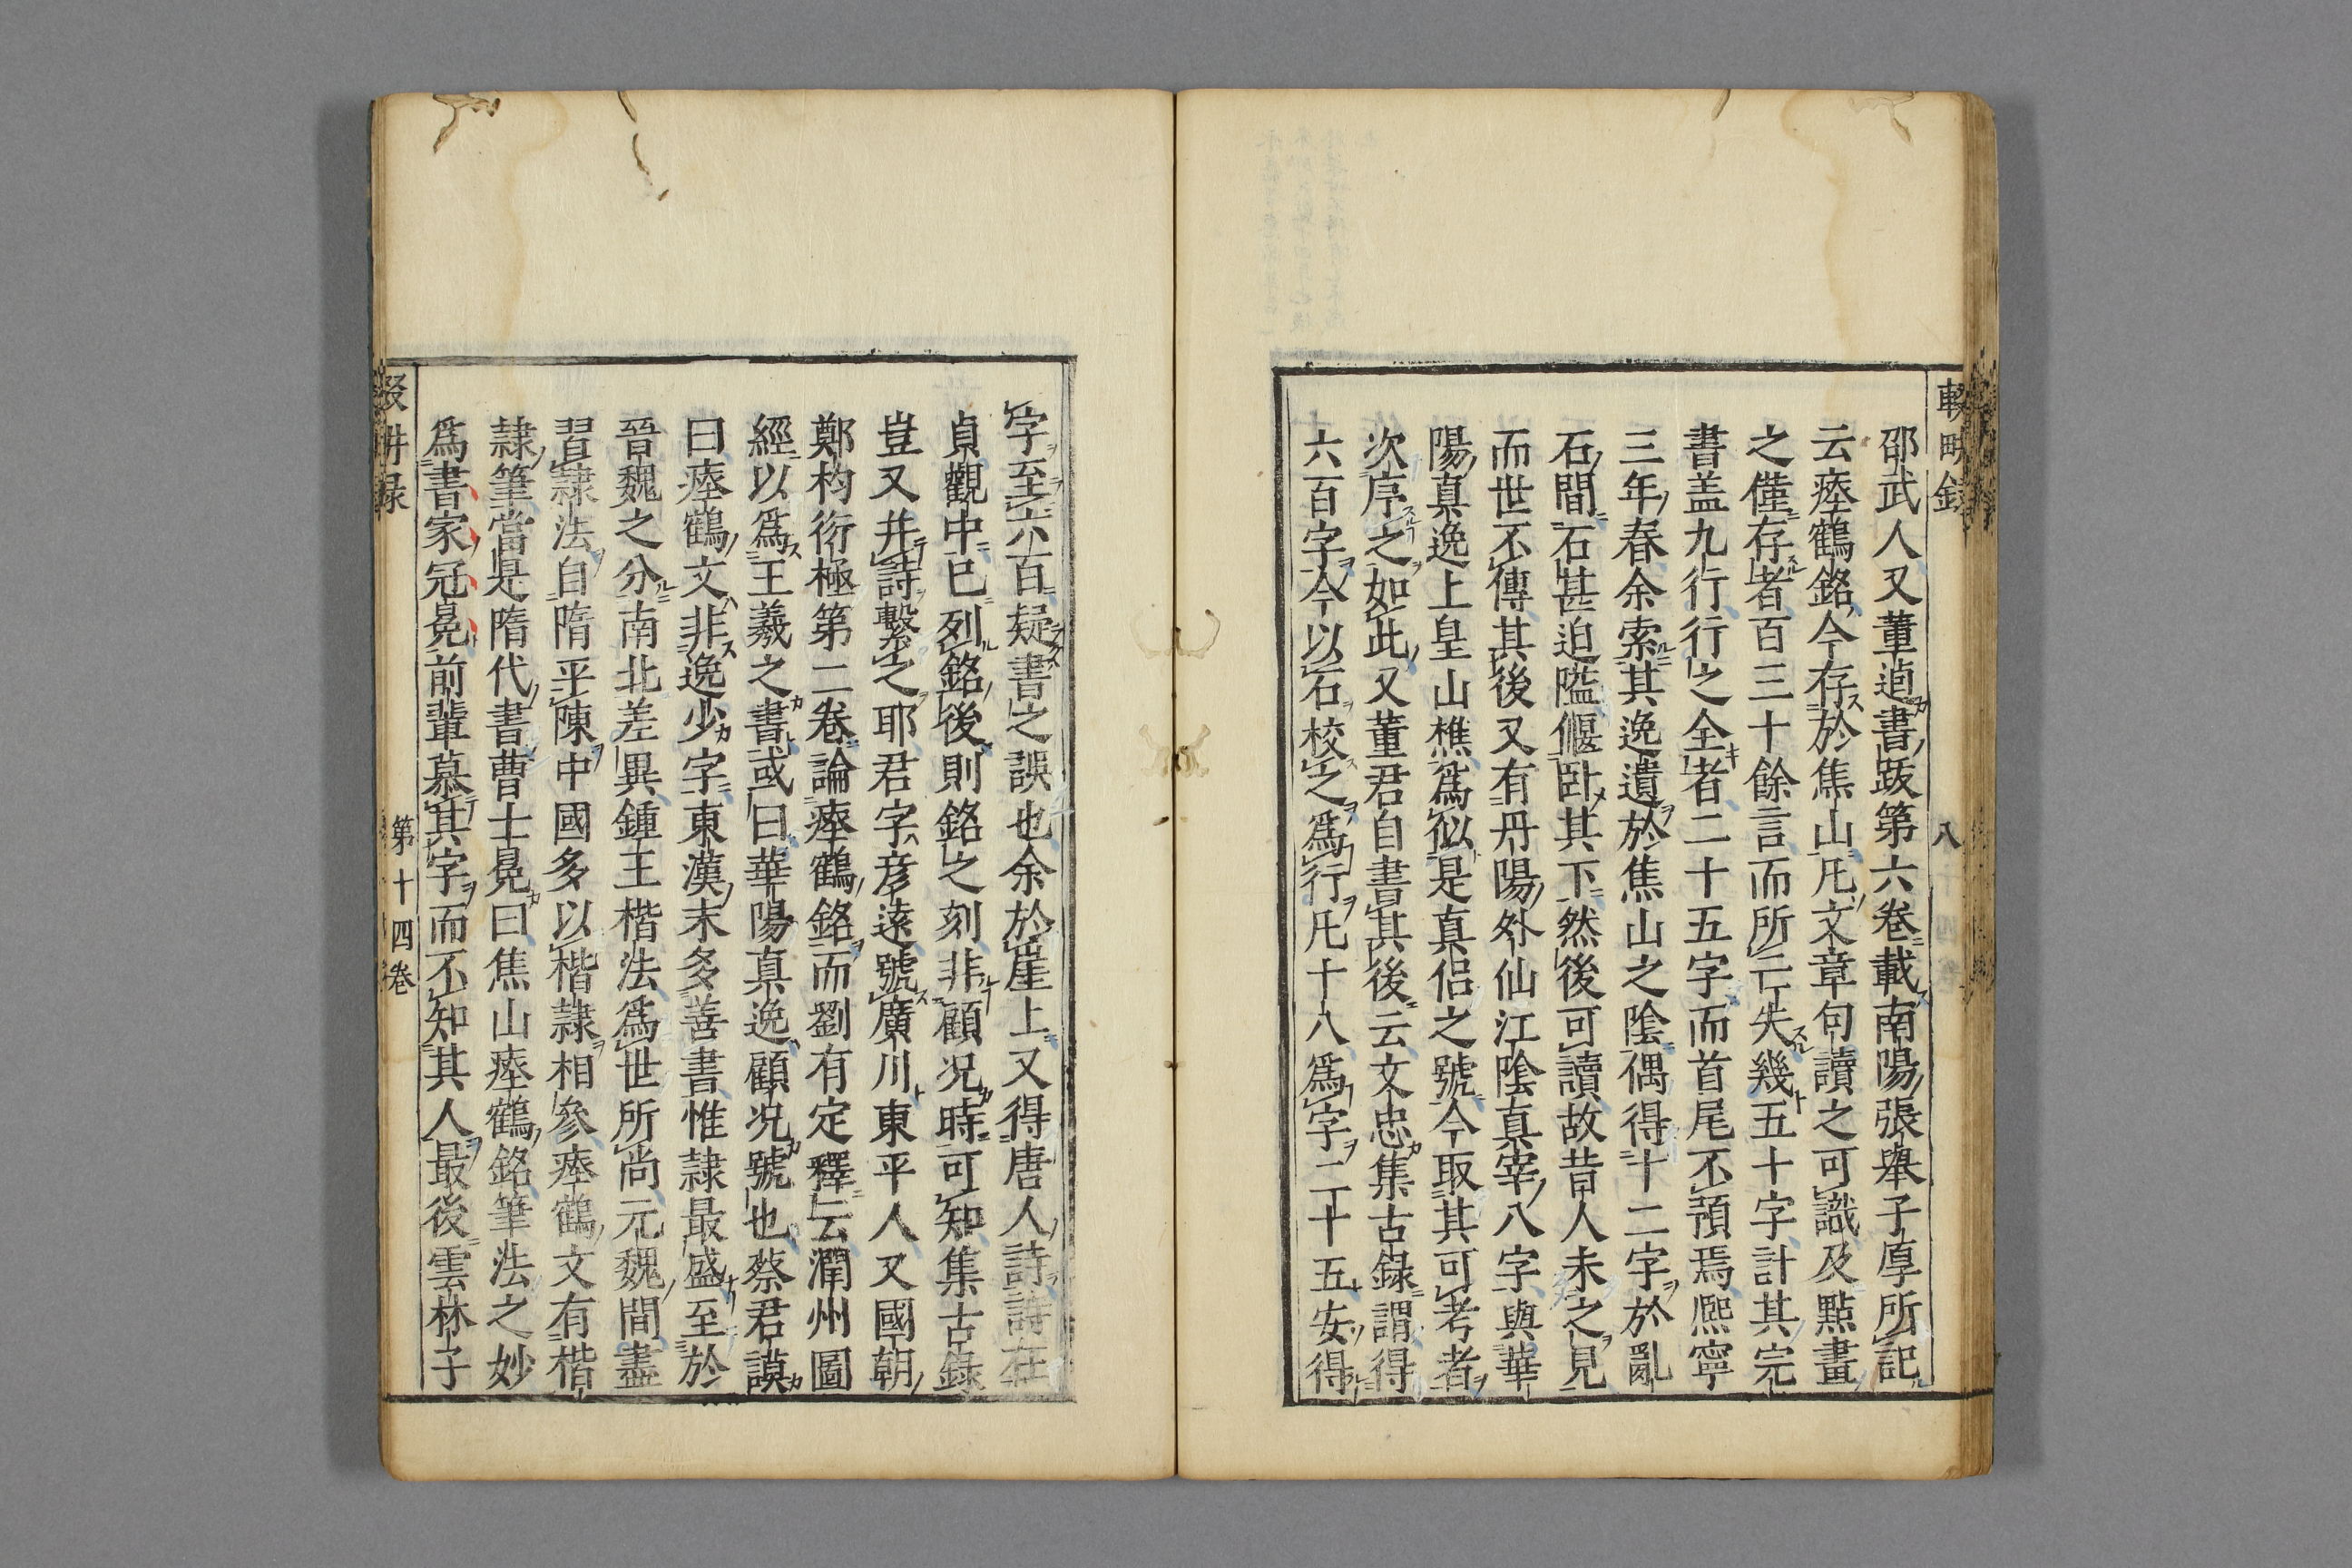 邵武人又董逌書跋第六卷載南陽張舉子厚所記
云瘞鶴銘今存於焦山凡文章句讀之可識及點畫
之僅存者百三十餘言而所亡失幾五十字計其完
書盖九行行之全者二十五字而首尾不預焉熈寧
三年春余索其逸遺於焦山之陰偶得十二字於亂
石間石甚迫隘偃卧其下然後可讀故昔人未之見
而世不傳其後又有丹陽外仙江陰真宰八字與華
陽真逸上皇山樵爲似是真侣之號今取其可考者
次序之如此又董君自書其後云文忠集古錄謂得
六百字今以石校之爲行凡十八爲字二十五安得
字至六百疑書之誤也余於崖上又得唐人詩詩在
貞觀中已列銘後則銘之刻非顧况時可知集古錄
豈又并詩繫之耶君字彦遠號廣川東平人又國朝
鄭杓衍極第二卷論瘞鶴銘而劉有定釋云潤州圖
經以爲王羲之書或曰華陽真逸顧况號也蔡君謨
曰瘞鶴文非逸少字東漢末多善書惟隷最盛至於
晉魏之分南北差異鍾王楷法爲世所尚元魏間盡
習隷法自隋平陳中國多以楷隷相參瘞鶴文有楷
隷筆當是隋代書曹士冕曰焦山瘞鶴銘筆法之妙
爲書家冠冕前輩慕其字而不知其人最後雲林子
八
第十四卷